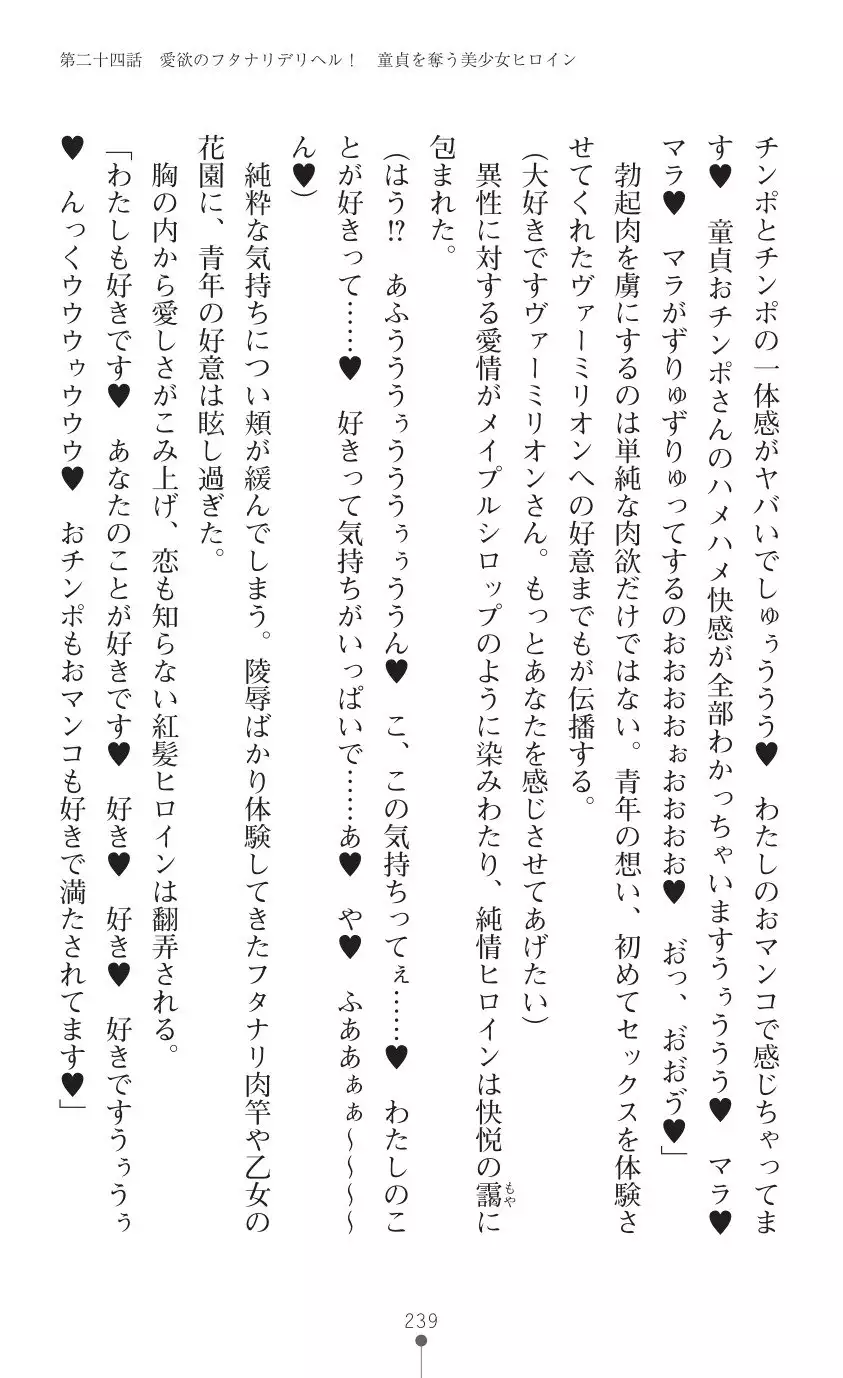 第二十四話　愛欲のフタナリデリヘル！　童貞を奪う美少女ヒロイン
チンポとチンポの一体感がヤバいでしゅぅううう♥　わたしのおマンコで感じちゃってま
す♥　童貞おチンポさんのハメハメ快感が全部わかっちゃいますうぅううう♥　マラ♥
マラ♥　マラがずりゅずりゅってするのおおおおぉおおおお♥　お゛っ、お゛お゛ゔ♥」
　勃起肉を虜にするのは単純な肉欲だけではない。青年の想い、初めてセックスを体験さ
せてくれたヴァーミリオンへの好意までもが伝播する。
（大好きですヴァーミリオンさん。もっとあなたを感じさせてあげたい）
　異性に対する愛情がメイプルシロップのように染みわたり、純情ヒロインは快悦の靄に
もや
包まれた。
（はう!?　あふうううぅうううぅぅううん♥　こ、この気持ちってぇ……♥　わたしのこ
とが好きって……♥　好きって気持ちがいっぱいで……あ♥　や♥　ふああぁぁ～～～～
ん♥）
　純粋な気持ちについ頬が緩んでしまう。陵辱ばかり体験してきたフタナリ肉竿や乙女の
花園に、青年の好意は眩し過ぎた。
　胸の内から愛しさがこみ上げ、恋も知らない紅髪ヒロインは翻弄される。
「わたしも好きです♥　あなたのことが好きです♥　好き♥　好き♥　好きですうぅうぅ
♥　んっくウウウゥウウウ♥　おチンポもおマンコも好きで満たされてます♥」
239